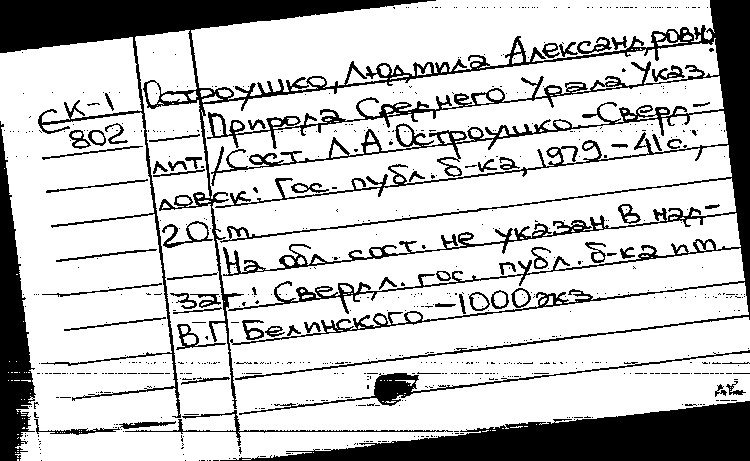 Остроушко, Людмила Александровна
СК-1
802
Природа Среднего Урала: Указ.
лит. /Сост. Л.А.Остроушко.-Сверд-
ловск: Гос. публ. б-ка, 1979.-41с.;
20см.
На обл. сост. не указан. В над-
заг.: Свердл. гос. публ. б-ка им.
В.Г. Белинского -1000экз.